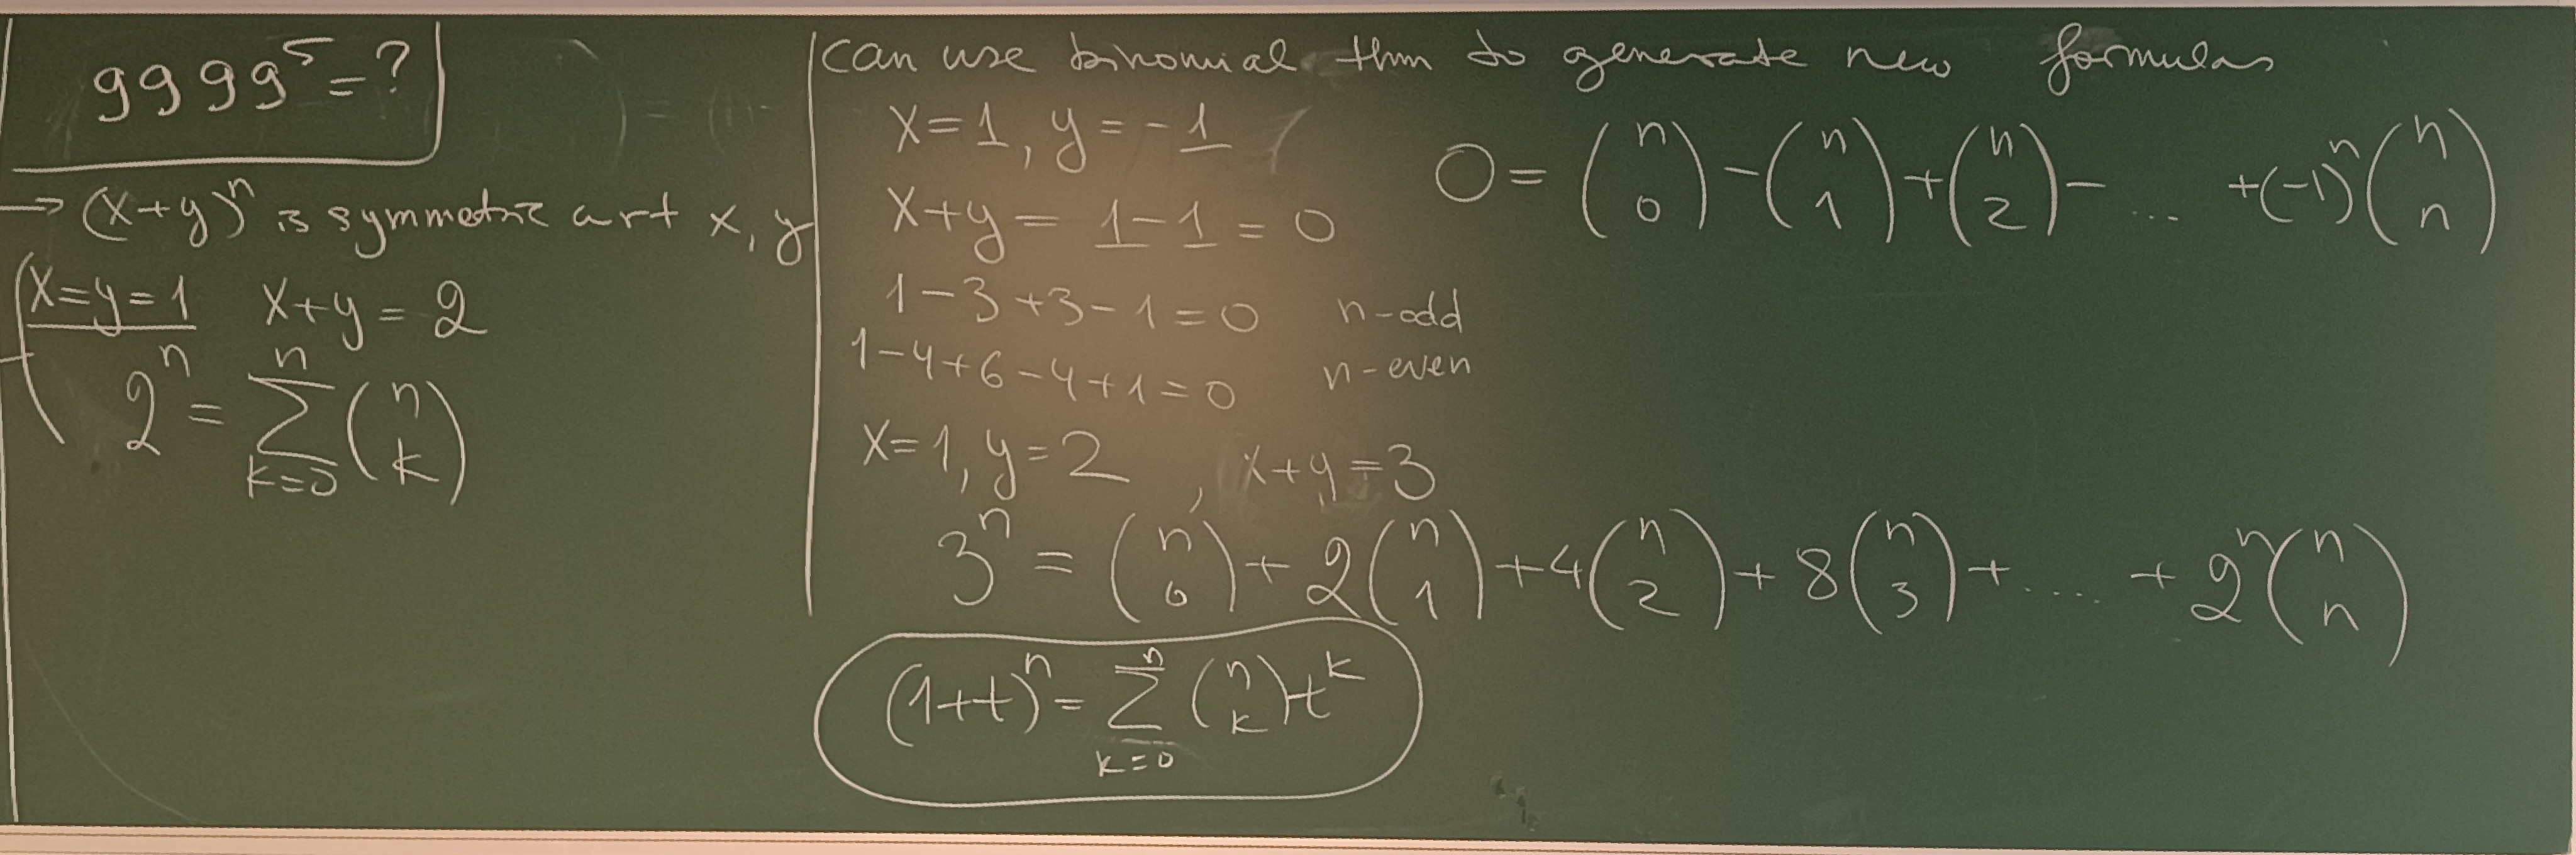 9999^5 = ?
→ (x+y)^n is symmetric wrt x, y
x=y=1   x+y=2
2^n = \sum_{k=0}^{n} \binom{n}{k}
can use binomial thm to generate new formulas
x=1, y=-1
x+y = 1-1 = 0
0 = \binom{n}{0} - \binom{n}{1} + \binom{n}{2} - ... + (-1)^n \binom{n}{n}
1-3+3-1=0   n-odd
1-4+6-4+1=0   n-even
x=1, y=2 , x+y=3
3^n = \binom{n}{0} + 2\binom{n}{1} + 4\binom{n}{2} + 8\binom{n}{3} + .... + 2^n \binom{n}{n}
(1+t)^n = \sum_{k=0}^{n} \binom{n}{k} t^k